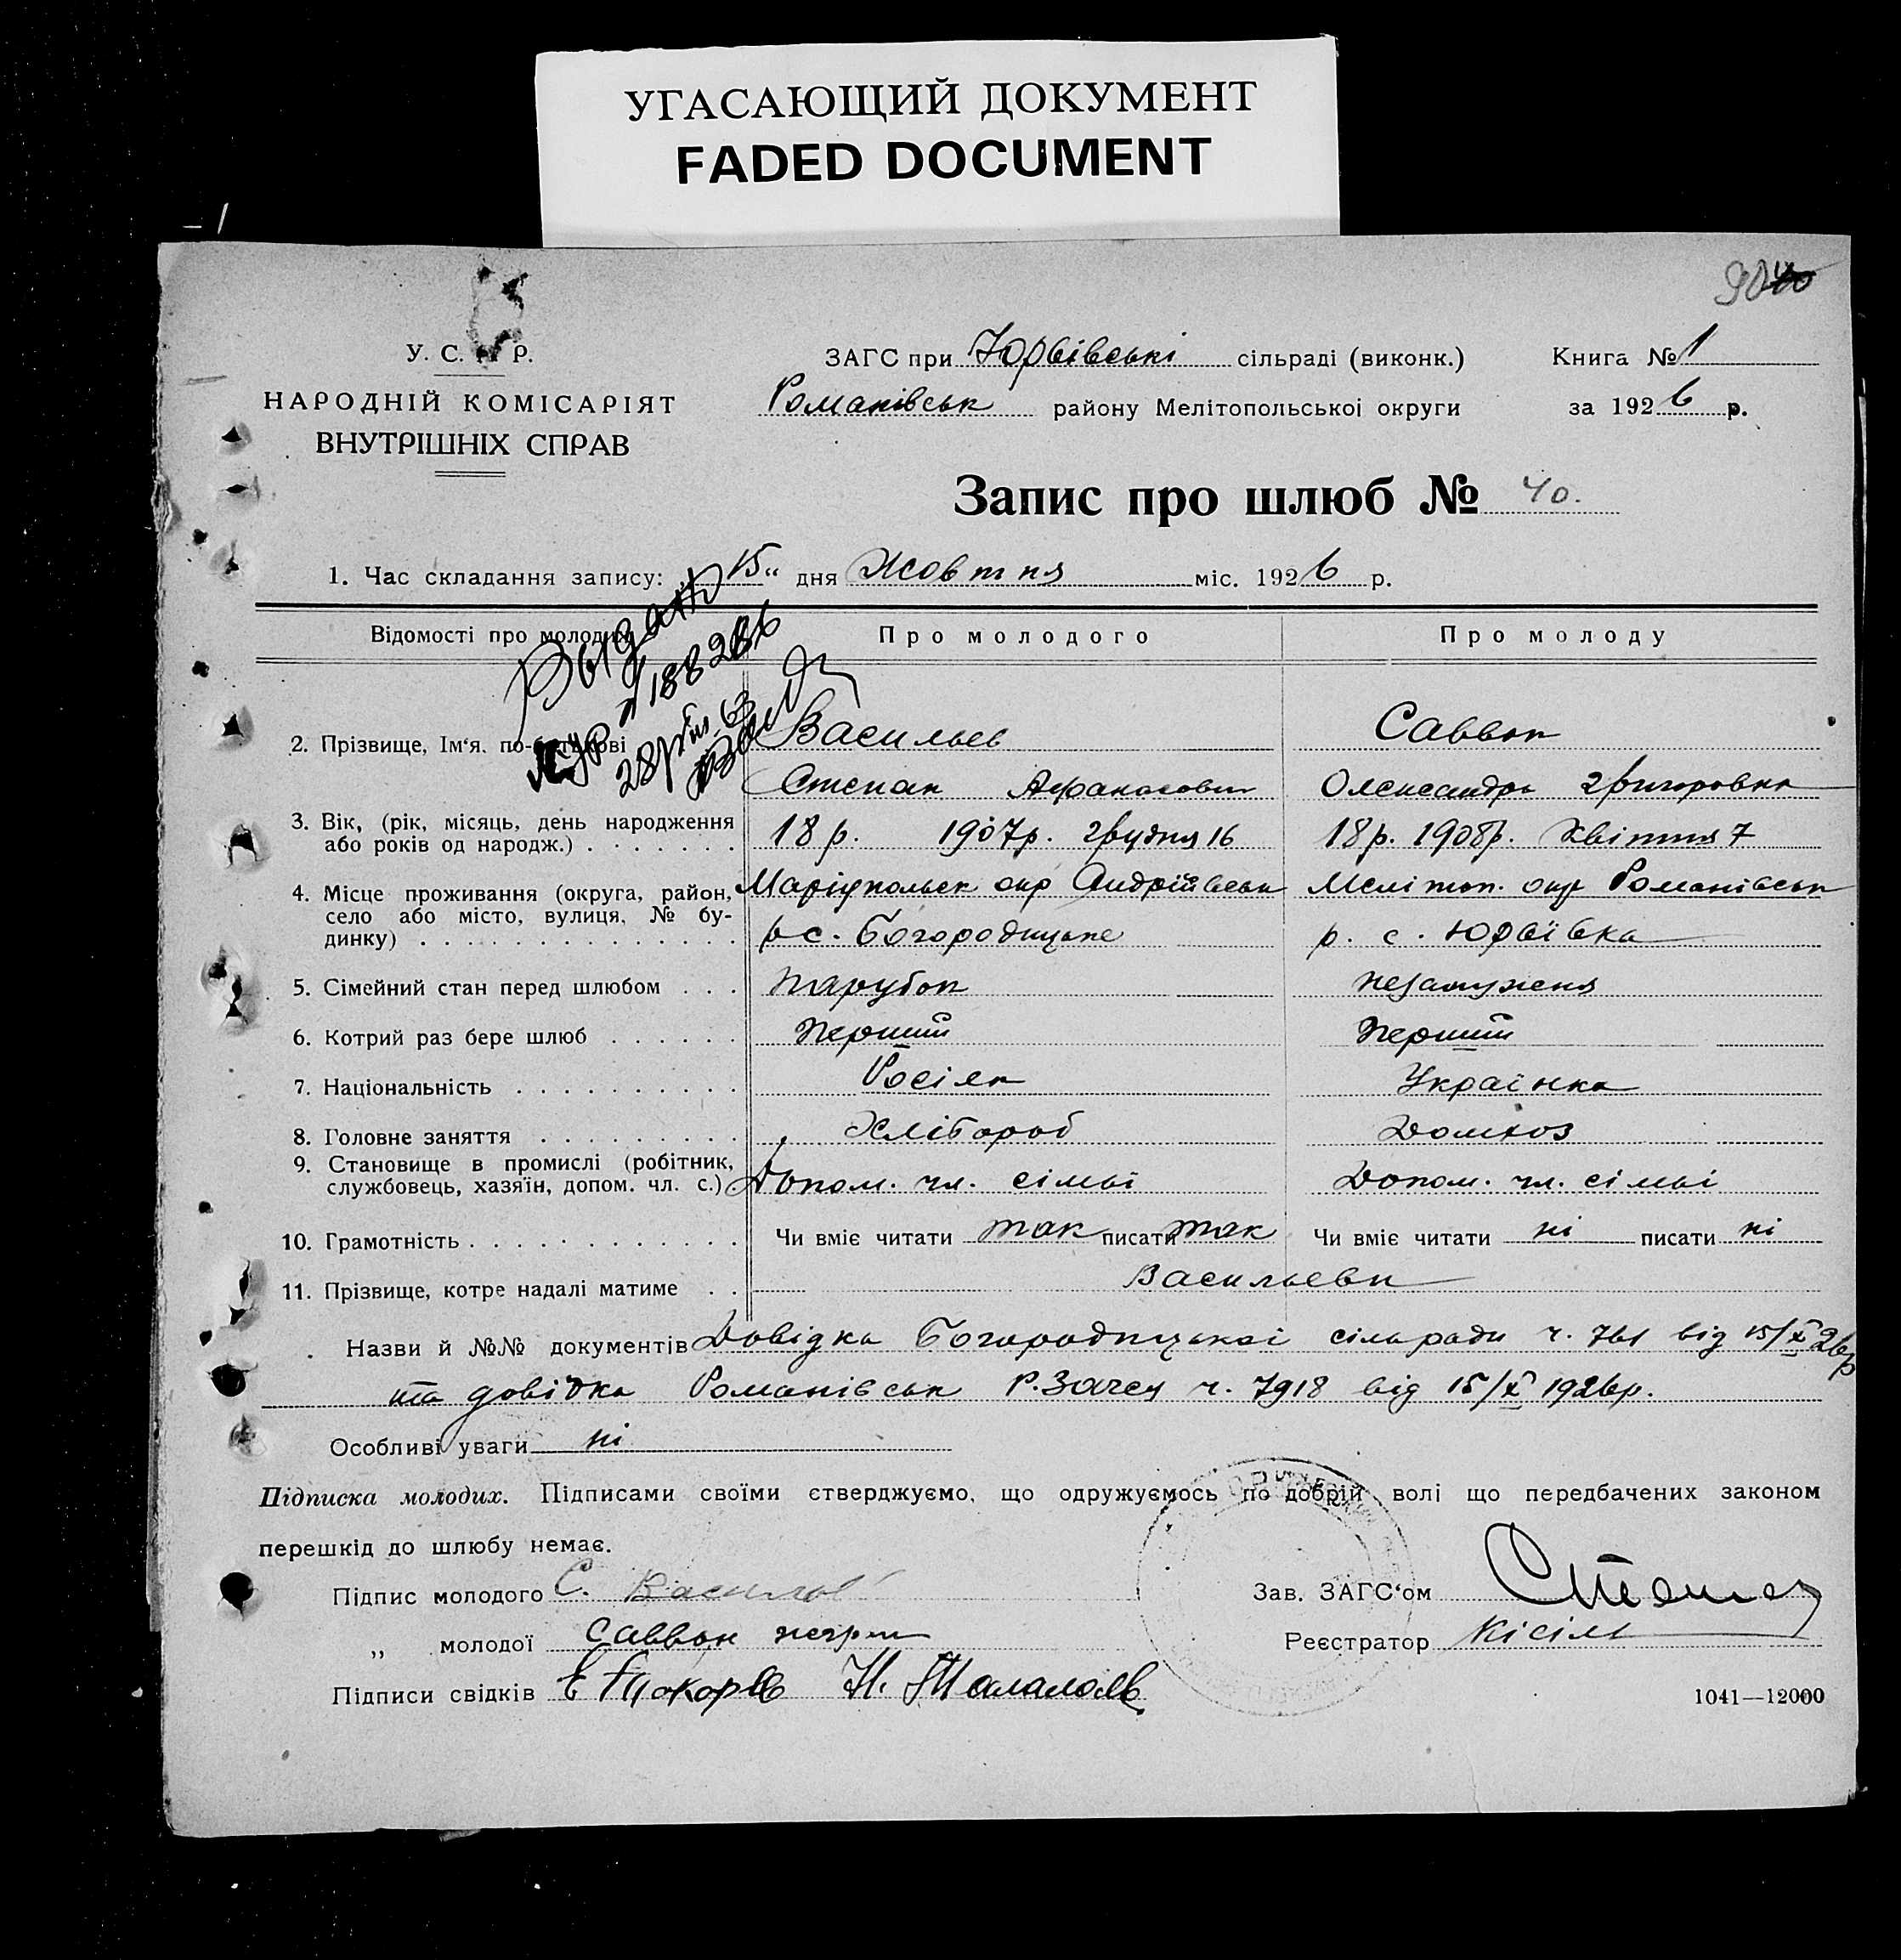 УГАСАЮЩИЙ ДОКУМЕНТ
FADED DOCUMENT
90 40
У. С. Р.
НАРОДНІЙ КОМІСАРІЯТ
ВНУТРІШНІХ СПРАВ
ЗАГС при Юрвівські сільраді (виконк.)
Романівськ району Мелітопольської округи
Книга № 1
за 1926 р.
Запис про шлюб № 40.
1. Час складання запису: 15 „ дня Жовтня міс. 1926 р.
Відомості про молодих
Про молодого
Про молоду
2. Прізвище, Ім'я. по-батькові
Васильев
Саввон
Степан Афанасович
Олександра Григоровна
3. Вік, (рік, місяць, день народження або років од народж.)
18 р. 1907р. грудня 16
18р. 1908р. Квітня 7
4. Місце проживання (округа, район, село або місто, вулиця, № будинку)
Маріупольськ окр Андріївськ
р с. Богородицьке
Меліtoп. окр Романівськ
р. с. Юрвївка
5. Сімейний стан перед шлюбом
парубок
незамужня
6. Котрий раз бере шлюб
Перший
Перший
7. Національність
Росіян
Українка
8. Головне заняття
Хлібороб
Домхоз
9. Становище в промислі (робітник, службовець, хазяїн, допом. чл. с.)
Допом. чл. сімьї
Допом. чл. сімьї
10. Грамотність
Чи вміє читати так писати так
Чи вміє читати ні писати ні
11. Прізвище, котре надалі матиме
Васильеви
Назви й №№ документів Довідка Богородицької сільради ч. 761 від 15/X 26р
та довідка Романівськ Р.Загсу ч. 7918 від 15/X 1926р.
Особливі уваги ні
Підписка молодих. Підписами своїми стверджуємо, що одружуємось по добрій волі що передбачених законом
перешкід до шлюбу немає.
Підпис молодого С. Василев
„ молодої Саввон
Підписи свідків
Зав. ЗАГС'ом
Реєстратор Кісіль
1041—12000